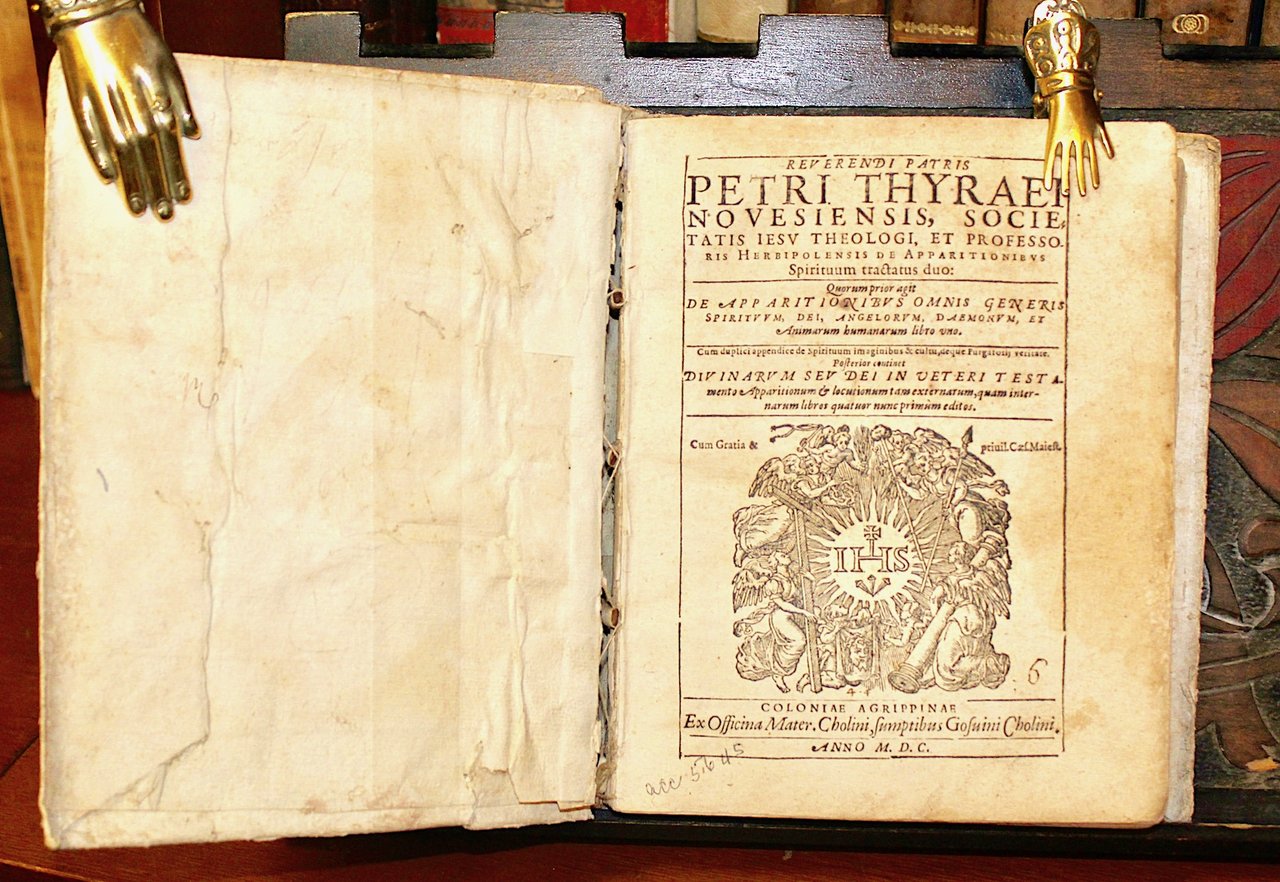 REVERENDI PATRIS
PETRI THYRAEI
NOVESIENSIS, SOCIE,
TATIS IESV THEOLOGI, ET PROFESSO.
RIS HERBIPOLENSIS DE APPARITIONIBVS
Spirituum tractatus duo:
Quorum prior agit
DE APPARITIONIBVS OMNIS GENERIS
SPIRITVVM, DEI, ANGELORVM, DAEMONVM, ET
Animarum humanarum libro vno.
Cum duplici appendice de Spirituum imaginibus & cultu, deque Purgatorij veritate.
Posterior continet
DIVINARVM SEV DEI IN VETERI TESTA-
mento Apparitionum & locutionum tam externarum, quam inter-
narum libros quatuor nunc primùm editos.
Cum Gratia & priuil. Cæs. Maiest.
IHS
6
COLONIAE AGRIPPINAE
Ex Officina Mater. Cholini, sumptibus Gosuini Cholini.
ANNO M. D. C.
acc 5645